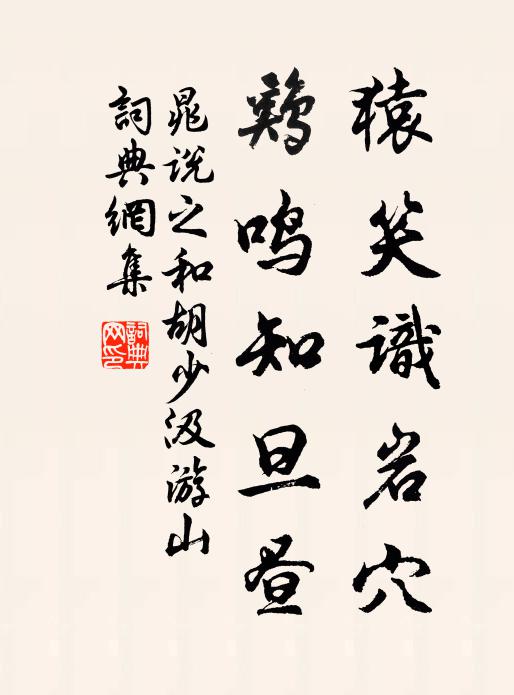 猿笑識岩穴
鷄鳴知旦昼
晁说之和胡少汲游山
詞典網集
詞典网印